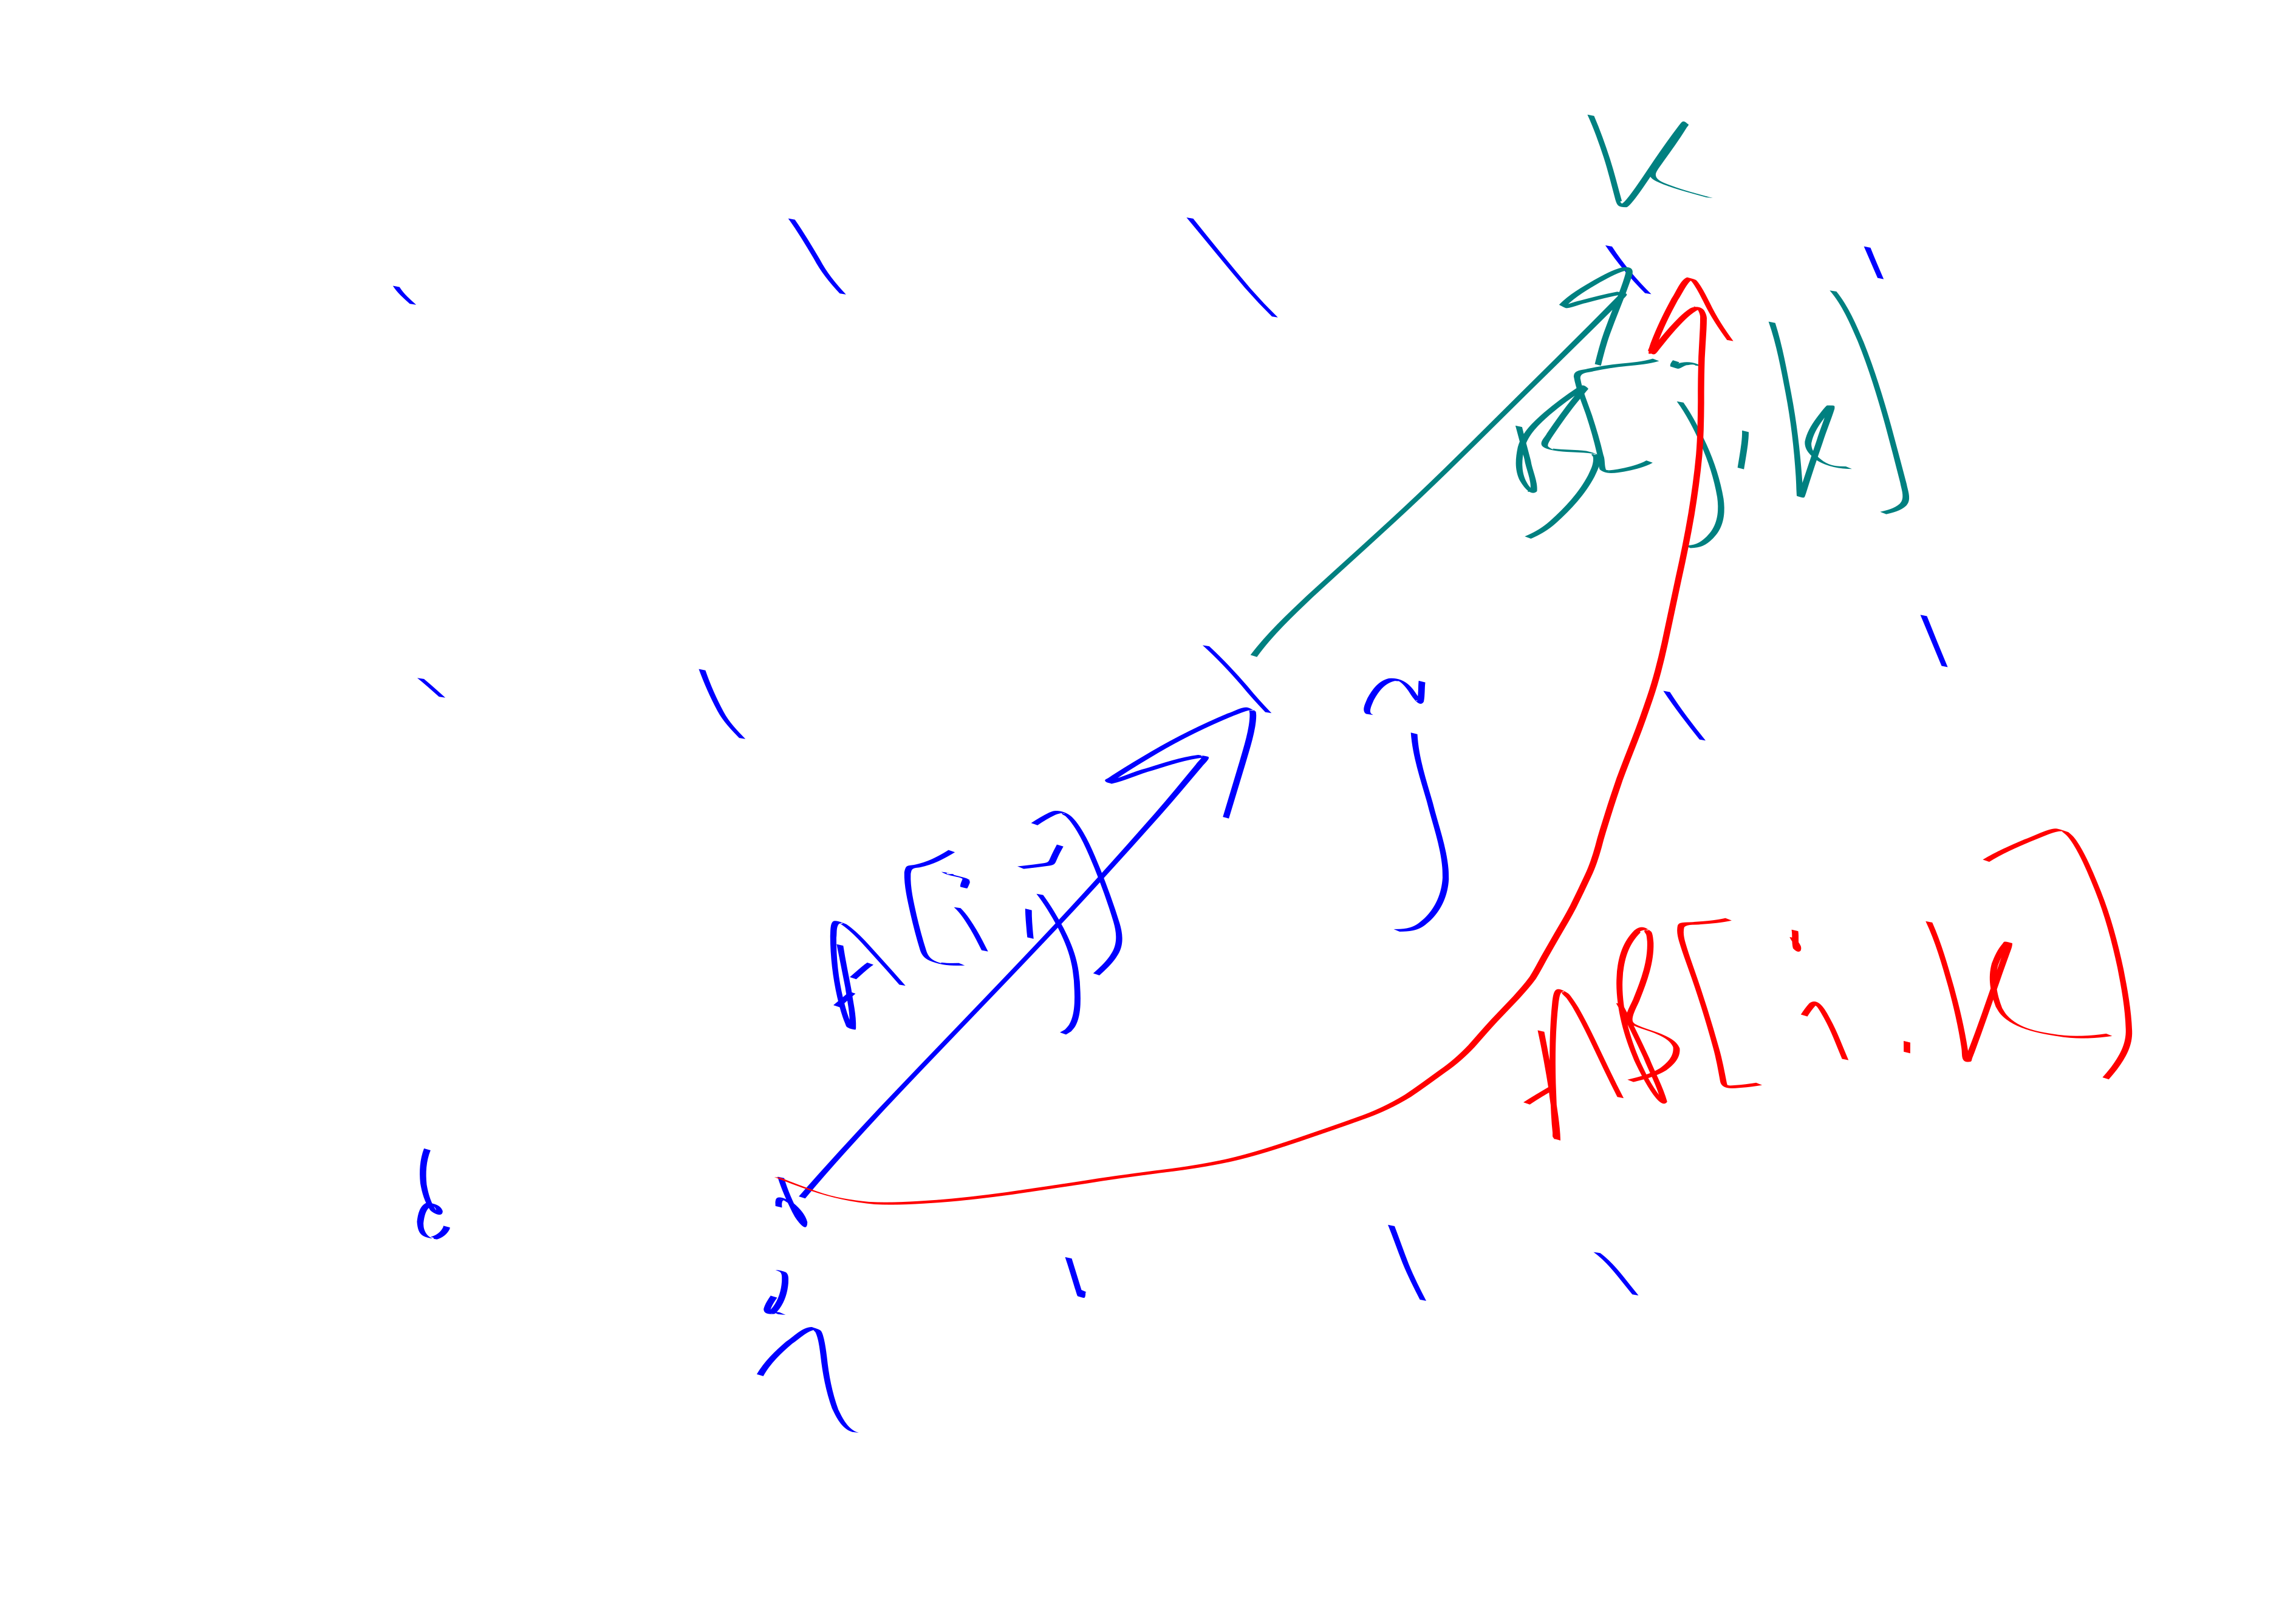 k
B[j,k]
j
A[i,j]
AB[i,k]
i